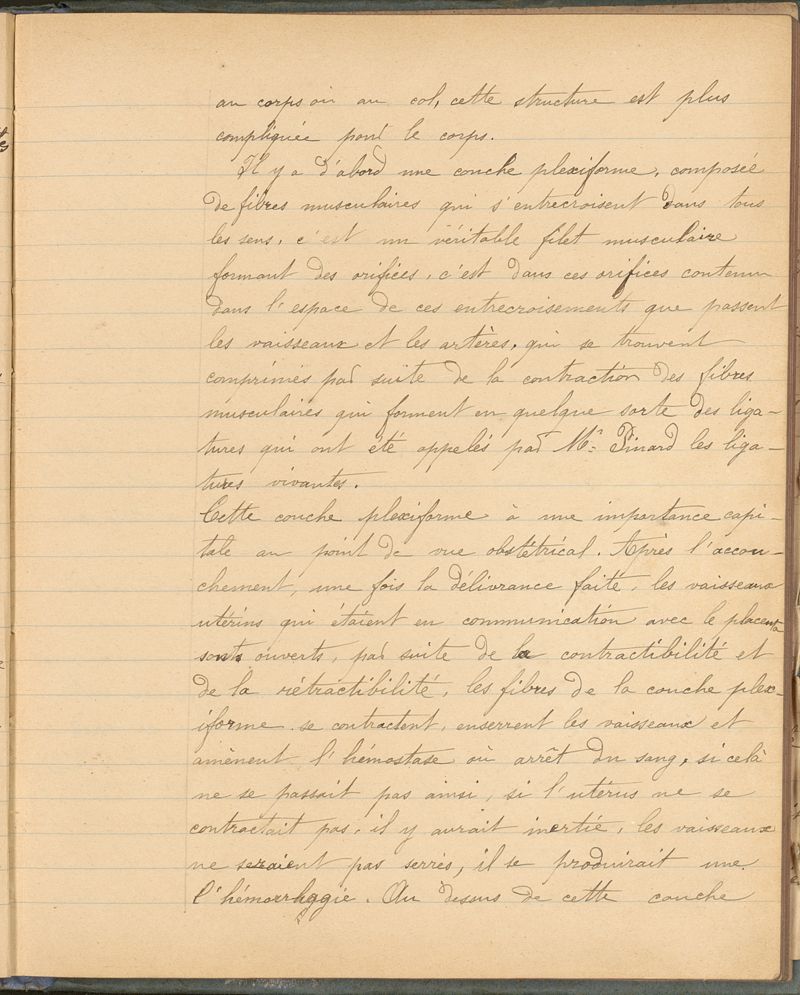 au corps où au col, cette structure est plus
compliquée pour le corps.
Il y a d'abord une couche plexiforme, composée
de fibres musculaires qui s'entrecroisent dans tous
les sens, c'est un véritable filet musculaire
formant des orifices, c'est dans ces orifices contenu
dans l'espace de ces entrecroisements que passent
les vaisseaux et les artères, qui se trouvent
comprimés par suite de la contraction des fibres
musculaires qui forment en quelque sorte des liga-
tures qui ont été appelés par Mr Pinard les liga-
tures vivantes.
Cette couche plexiforme à une importance capi-
tale au point de vue obstétrical. Après l'accou-
chement, une fois la délivrance faite, les vaisseaux
utérins qui étaient en communication avec le placenta
sont ouverts, par suite de la contractibilité et
de la rétractibilité, les fibres de la couche plex-
iforme se contractent, enserrent les vaisseaux et
amènent l'hémostase où arrêt du sang, si celà
ne se passait pas ainsi, si l'utérus ne se
contractait pas, il y aurait inertie, les vaisseaux
ne seraient pas serrés, il se produirait une
l'hémorrhagie. Au dessus de cette couche